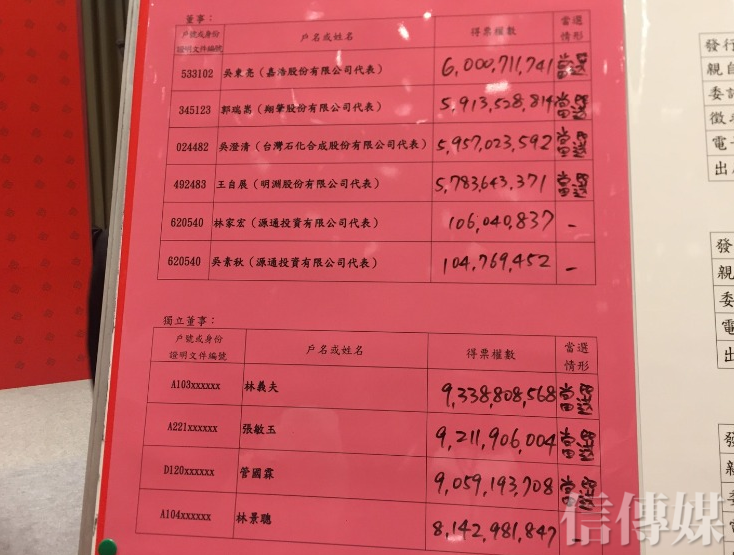 董事：
戶號或身份證明文件編號 戶名或姓名 得票權數 當選情形
533102 吳東亮（嘉浩股份有限公司代表） 6,000,711,741 當選
345123 郭瑞嵩（翔肇股份有限公司代表） 5,913,528,814 當選
024482 吳澄清（台灣石化合成股份有限公司代表） 5,957,023,592 當選
492483 王自展（明淵股份有限公司代表） 5,783,643,371 當選
620540 林家宏（源通投資有限公司代表） 106,040,837 -
620540 吳素秋（源通投資有限公司代表） 104,769,452 -
獨立董事：
戶號或身份證明文件編號 戶名或姓名 得票權數 當選情形
A103xxxxxx 林義夫 9,338,808,568 當選
A221xxxxxx 張敏玉 9,211,906,004 當選
D120xxxxxx 管國霖 9,059,193,708 當選
A104xxxxxx 林景聰 8,142,981,847 -
發行
親自
委託
徵
電子
出
發
親
委
電
出
發
親
委
信傳媒